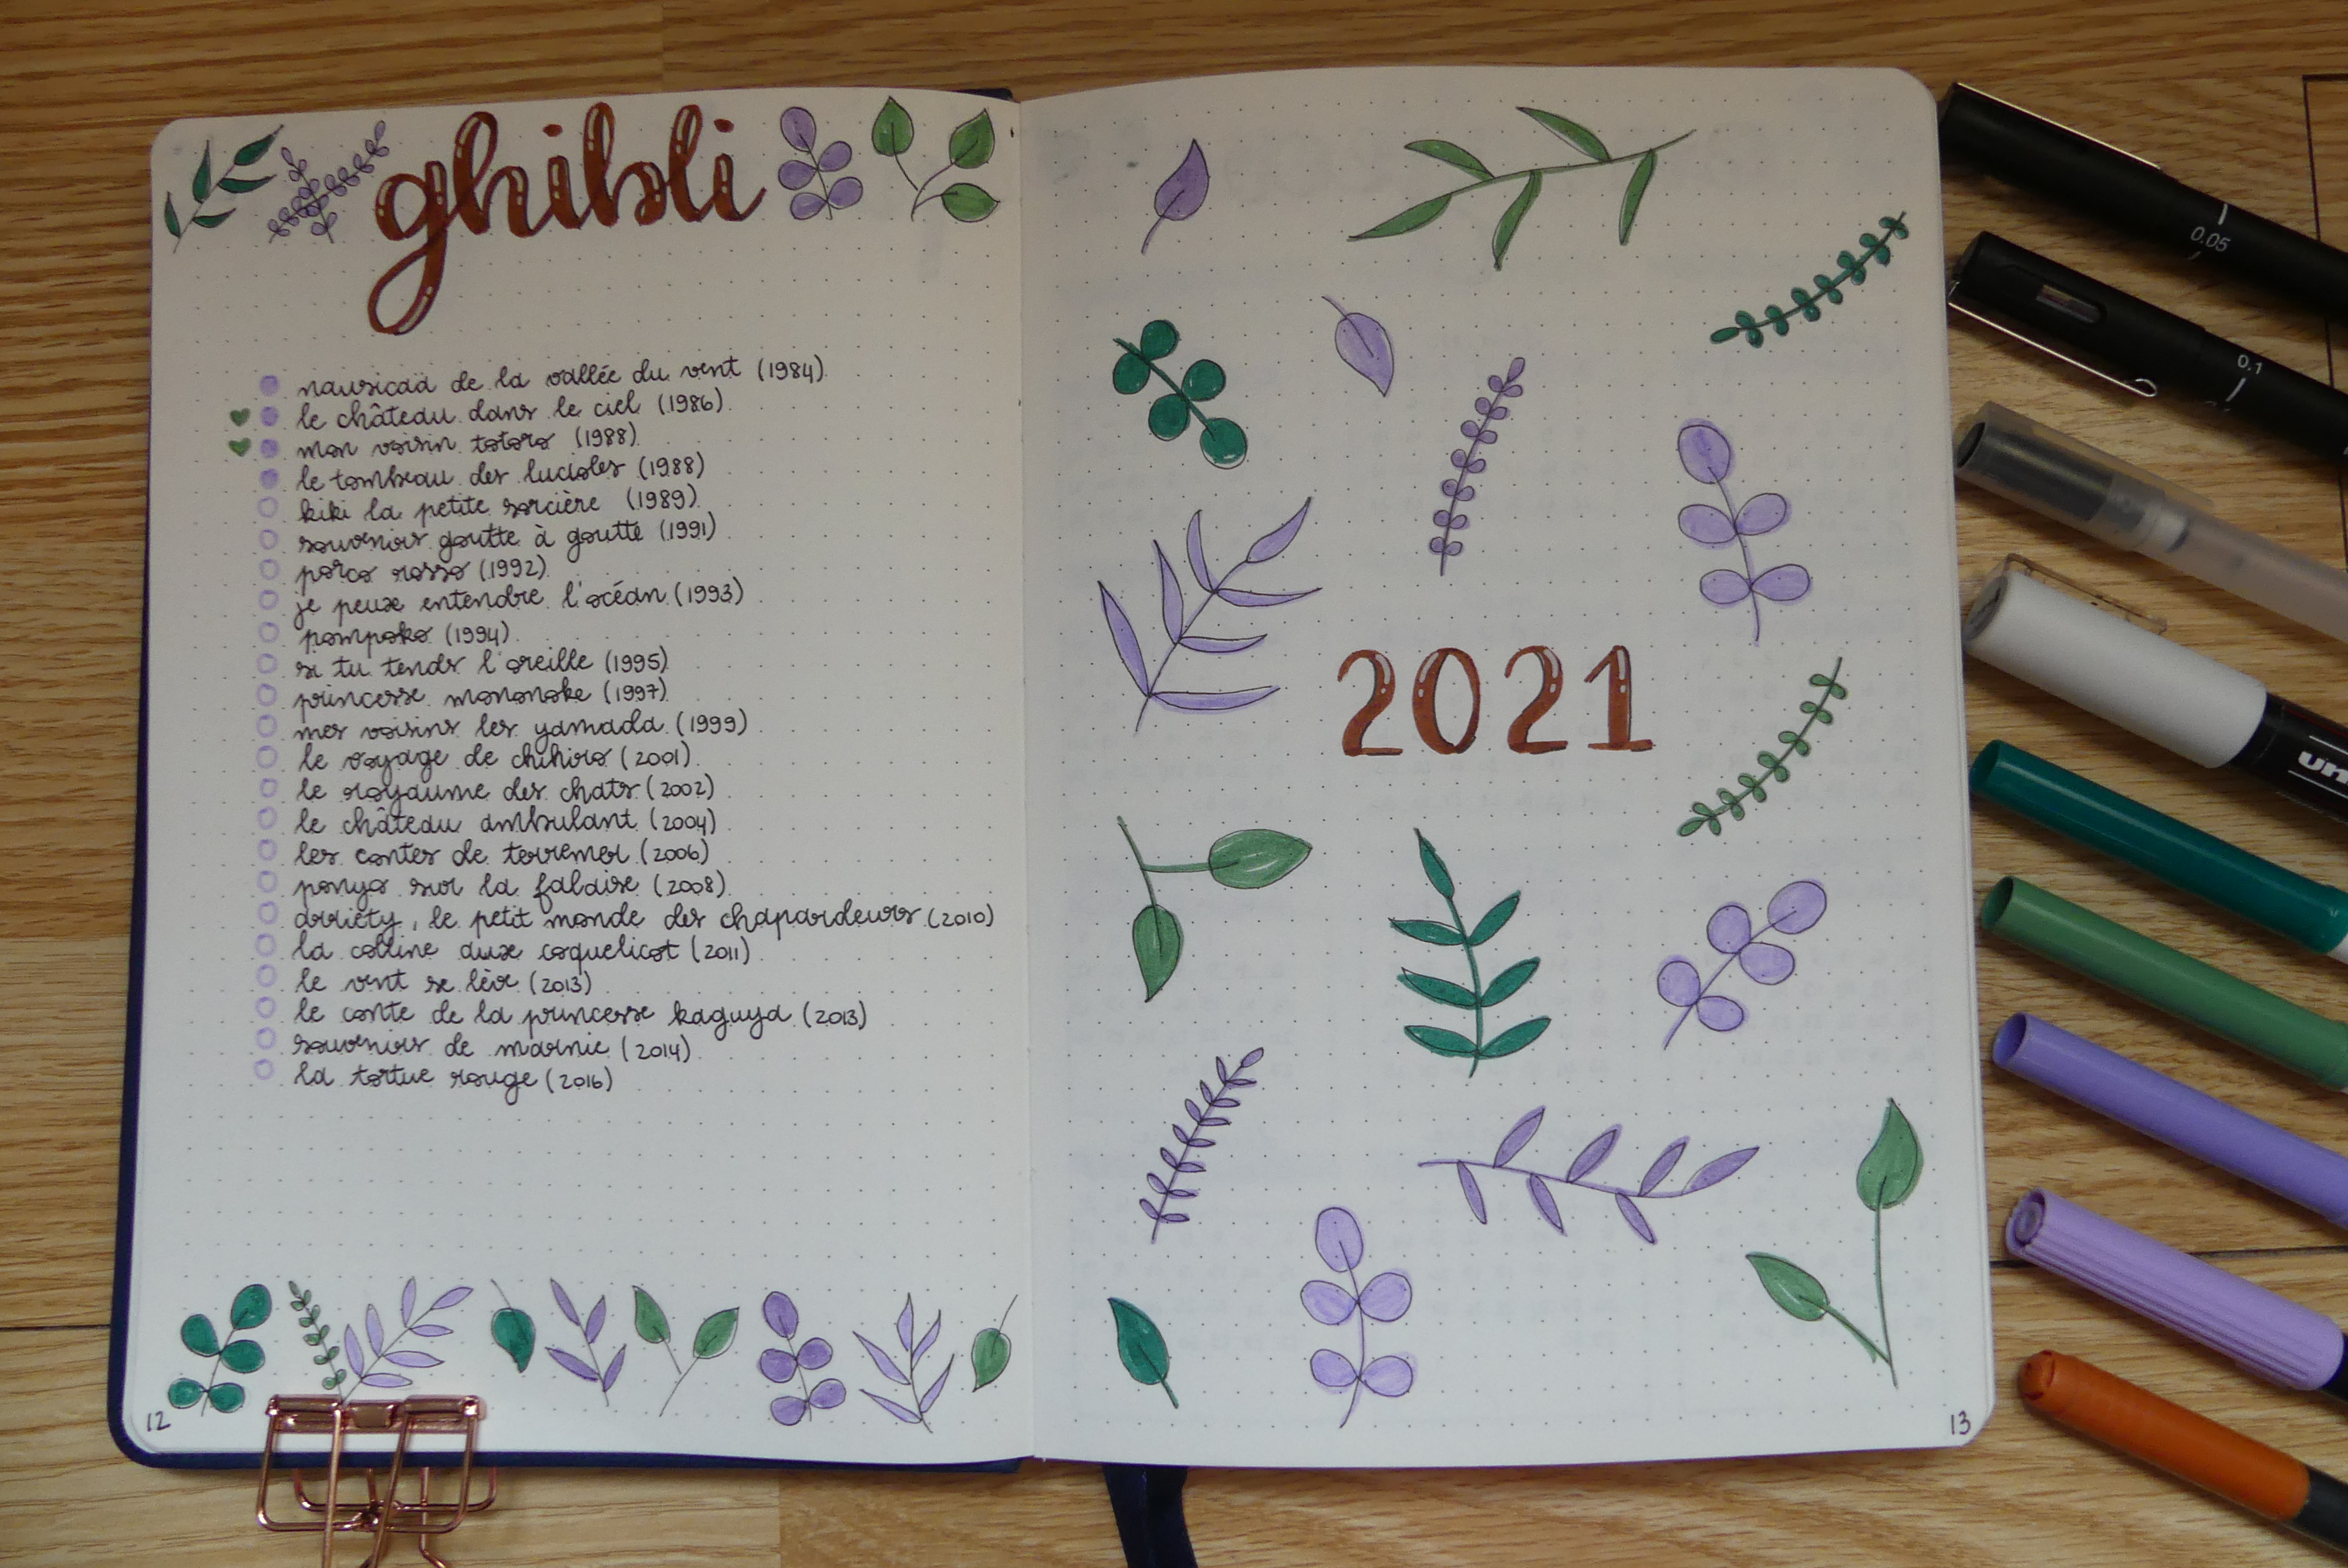 ghibli
nausicaä de la vallée du vent (1984)
le château dans le ciel (1986)
mon voisin totoro (1988)
le tombeau des lucioles (1988)
kiki la petite sorcière (1989)
souvenirs goutte à goutte (1991)
porco rosso (1992)
je peux entendre l'océan (1993)
pompoko (1994)
si tu tends l'oreille (1995)
princesse mononoke (1997)
mes voisins les yamada (1999)
le voyage de chihiro (2001)
le royaume des chats (2002)
le château ambulant (2004)
les contes de terremer (2006)
ponyo sur la falaise (2008)
arriety, le petit monde des chapardeurs (2010)
la colline aux coquelicot (2011)
le vent se lève (2013)
le conte de la princesse kaguya (2013)
souvenirs de marnie (2014)
la tortue rouge (2016)
12
2021
13
0.05
0.1